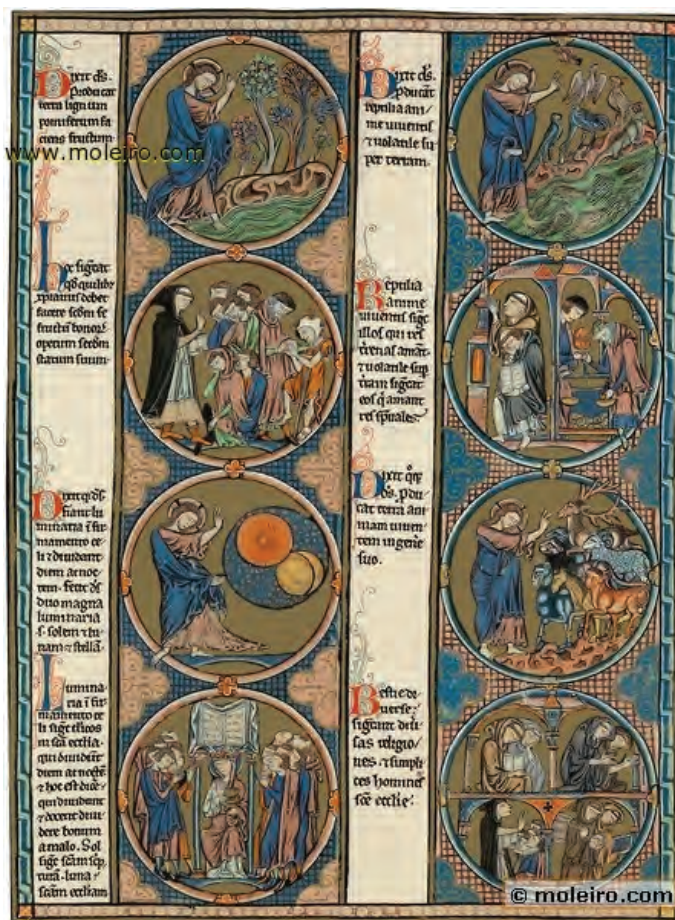 Dixit ds.
Producat
terra lignum
pomiferum fa
ciens fructum
www.moleiro.com
hoc sigcat
qd quilibz
xpianus debet
facere scdm se
fructū bonorꝝ
operum secdm
statum suum
Dixit qꝫ ds
fiant lu
minaria ī fir
mamento ce
li ⁊ diuidant
diem ac noc
tem. fecit ds
duo magna
luminaria
s. solem ⁊ lu
nam ⁊ stellas
Lumina
ria ī fir
mamento ce
li sigt clicos
in scā ecclia.
qui diuidūt
diem ac noctē
⁊ hoc est dice
qui diuidunt
⁊ docent diui
dere bonum
a malo. Sol
sigt scām scp
turā. luna
scām eccliam
Dixit ds.
pducāt
reptilia ani
me viuentis
⁊ volatile su
per terram.
Reptilia
anime
viuentis sigt
illos qui res
t'renas amāt
⁊ uolatile sup
t'ram sigcat
eos q̄ amant
res spuales.
Dixit qꝫ
ds. pdu
cat terra ani
mam uiuen
tem in gene
suo.
Bestie di
uerse
sigcant diu'
sas religio
nes ⁊ simpli
ces homines
sce ecclie.
© moleiro.com